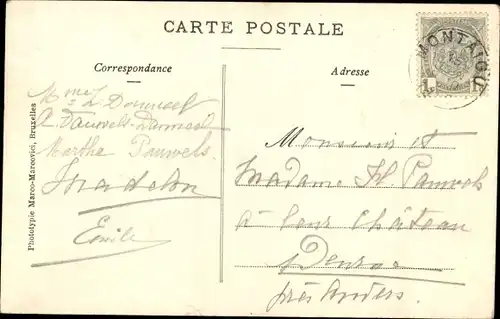 CARTE POSTALE
Correspondance
Adresse
MONTAIGU
1
1
Mme L Donnset
Pauwels
Martha Pauwels
Madelon
Emile
Monsieur et
Madame H Pauwels
à leur Château
près Anvers
Phototypie Marco-Marcovici, Bruxelles